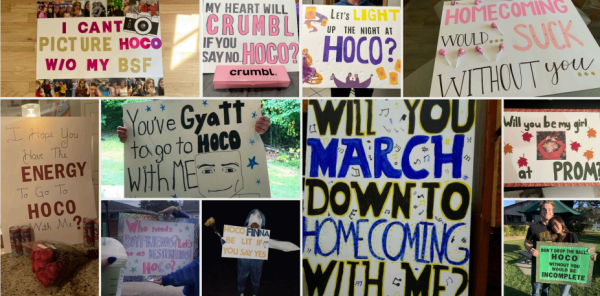 I CANT
PICTURE HOCO
W/O MY BSF
MY HEART WILL
CRUMBL
IF YOU
SAY NO.
HOCO?
crumbl.
Let's LIGHT
UP THE NIGHT
AT
HOCO?
HOMECOMING
WOULD... SUCK
WITHOUT YOU...
I Hope You
Have The
ENERGY
To Go To
HOCO
With Me?
You've Gyatt
to go to HOCO
With ME
WILL YOU
MARCH
DOWN TO
HOMECOMING
WITH ME?
Will you be my girl
at PROM?
Who needs
BOYFRIENDS! Let's
HOCO?
HOCO FINNA
BE LIT IF
YOU SAY YES
DON'T DROP THE BALL!
HOCO
WITHOUT YOU
WOULD BE
INCOMPLETE